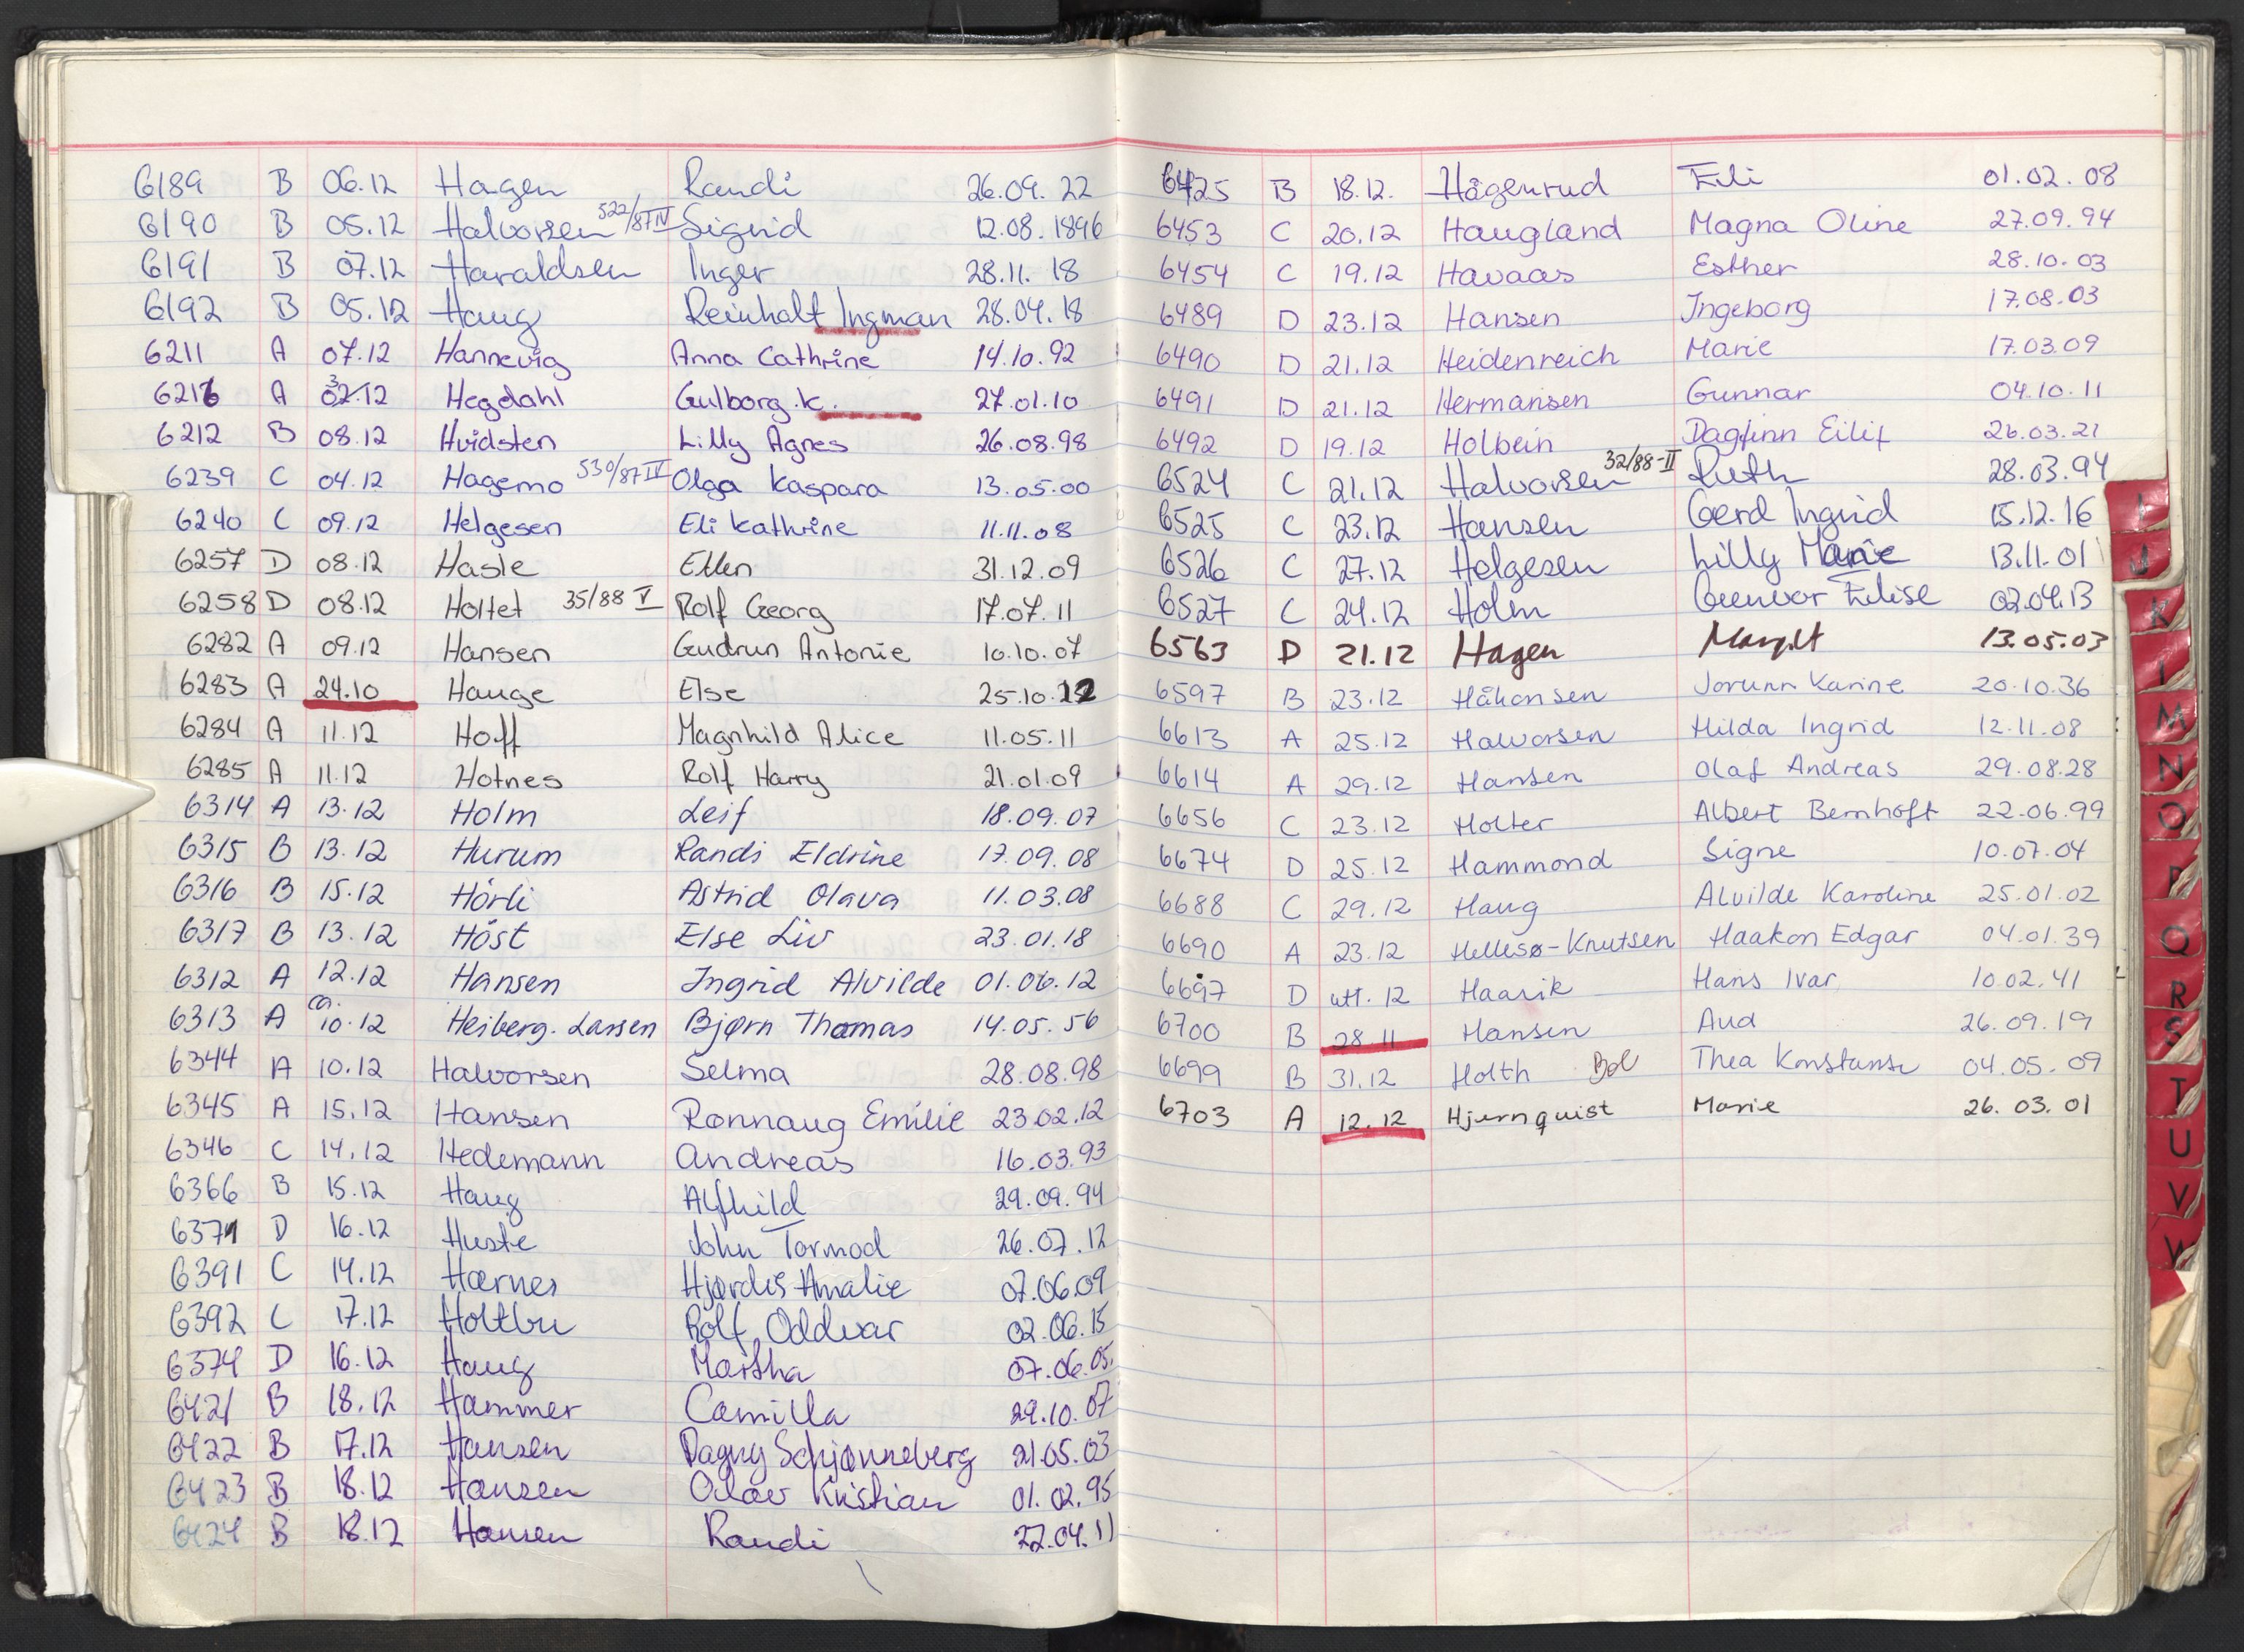 6189 B 06.12 Hagen Randi 26.09.22
6190 B 05.12 Halvorsen 522/87 IV Sigrid 12.08.1896
6191 B 07.12 Haraldsen Inger 28.11.18
6192 B 05.12 Haug Reinholt Ingman 28.04.18
6211 A 07.12 Hannevig Anna Cathrine 14.10.92
6216 A 03.12 Hegdahl Gulborg.K. 27.01.10
6212 B 08.12 Hvidsten Lilly Agnes 26.08.98
6239 C 04.12 Hagemo 530/87 IV Olga Kaspara 13.05.00
6240 C 09.12 Helgesen Eli Kathrine 11.11.08
6257 D 08.12 Hasle Ellen 31.12.09
6258 D 08.12 Holtet 35/88 V Rolf Georg 17.07.11
6282 A 09.12 Hansen Gudrun Antonie 10.10.07
6283 A 24.10 Hauge Else 25.10.22
6284 A 11.12 Hoff Magnhild Alice 11.05.11
6285 A 11.12 Hotnes Rolf Harry 21.01.09
6314 A 13.12 Holm Leif 18.09.07
6315 B 13.12 Hurum Randi Eldrine 17.09.08
6316 B 15.12 Hörli Astrid Olava 11.03.08
6317 B 13.12 Höst Else Liv 23.01.18
6312 A 12.12 Hansen Ingrid Alvilde 01.06.12
6313 A ca. 10.12 Heiberg-Larsen Bjørn Thomas 14.05.56
6344 A 10.12 Halvorsen Selma 28.08.98
6345 A 15.12 Hansen Rønnaug Emilie 23.02.12
6346 C 14.12 Hedemann Andreas 16.03.93
6366 B 15.12 Haug Alfhild 29.09.94
6371 D 16.12 Huste John Tormod 26.07.12
6391 C 14.12 Hærnes Hjørdis Amalie 07.06.09
6392 C 17.12 Holtbu Rolf Oddvar 02.06.15
6374 D 16.12 Haug Martha 07.06.05.
6421 B 18.12 Hammer Camilla 29.10.07
6422 B 17.12 Hansen Dagny Schjønneberg 21.05.03
6423 B 18.12 Hansen Olav Kristian 01.02.95
6424 B 18.12 Hansen Randi 22.04.11
6425 B 18.12. Hågenrud Eili 01.02.08
6453 C 20.12 Haugland Magna Oline 27.09.94
6454 C 19.12 Havaas Esther 28.10.03
6489 D 23.12 Hansen Ingeborg 17.08.03
6490 D 21.12 Heidenreich Marie 17.03.09
6491 D 21.12 Hermansen Gunnar 04.10.11
6492 D 19.12 Holbein Dagfinn Eilif 26.03.21
6524 C 21.12 Halvorsen 32/88-II Ruth 28.03.94
6525 C 23.12 Hansen Gerd Ingrid 15.12.16
6526 C 27.12 Helgesen Lilly Marie 13.11.01
6527 C 24.12 Holm Gunvor Elise 02.04.13
6563 D 21.12 Hagen Margit 13.05.03
6597 B 23.12 Håkonsen Jorunn Karine 20.10.36
6613 A 25.12 Halvorsen Hilda Ingrid 12.11.08
6614 A 29.12 Hansen Olaf Andreas 29.08.28
6656 C 23.12 Holter Albert Bernhoft 22.06.99
6674 D 25.12 Hammond Signe 10.07.04
6688 C 29.12 Haug Alvilde Karoline 25.01.02
6690 A 23.12 Hellesø-Knutsen Haakon Edgar 04.01.39
6697 D utt.12 Haarik Hans Ivar 10.02.41
6700 B 28.11 Hansen Aud 26.09.19
6699 B 31.12 Holth Bol Thea Konstanse 04.05.09
6703 A 12.12 Hjernquist Marie 26.03.01
I
J
K
L
M
N
O
P
Q
R
S
T
U
V
W